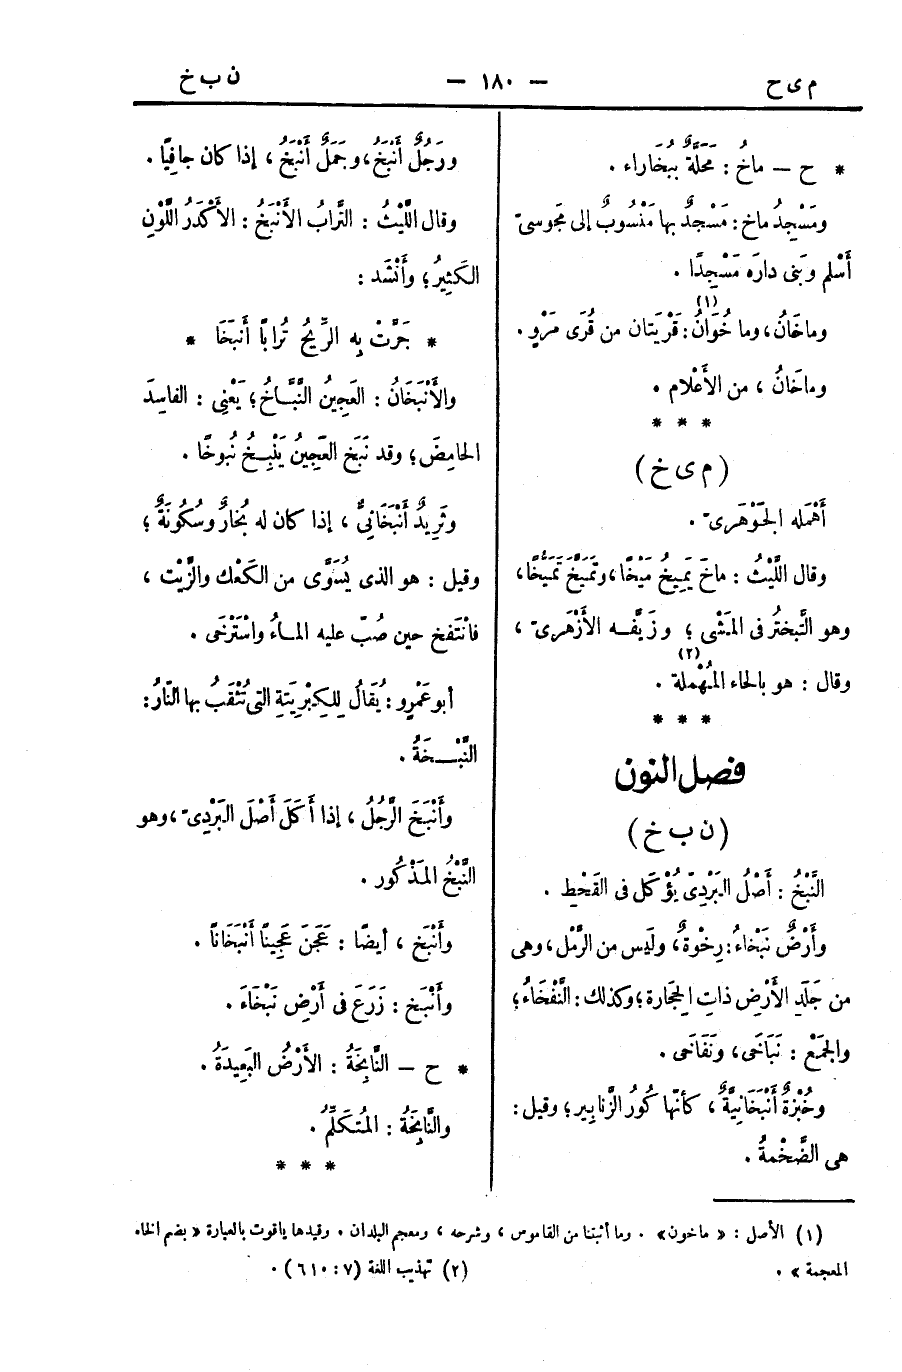 م ى ح
— ١٨٠ —
ن ب خ
* ح — ماخُ : مَحَلَّةٌ بِبُخَاراء .
ومَسْجِدُ ماخ : مَسْجِدٌ بها مَنْسُوبٌ إلى مَجوسىّ
أَسْلم وبَنى دارَه مَسْجِدًا .
وماخَانُ، وما خُوَانُ(١): قَرْيَتان من قُرَى مَرْوٍ .
وماخَانُ ، من الأَعْلام .
* * *
( م ى خ )
أَهْمله الجَوْهَرىّ .
وقال اللَّيْثُ : ماخَ يَمِيخُ مَيْخًا، وتَمَيَّخَ تَمَيُّخًا،
وهو التَّبَخترُ فى المَشْى ؛ وزَيَّفه الأَزْهَرىّ ،
وقال : هو بالحاء المُهْملة(٢) .
* * *
فصل النون
( ن ب خ )
النَّبْخُ : أَصْلُ البَرْدِىّ يُؤْكَل فى القَحْطِ .
وأَرْضٌ نَبْخاءُ: رِخْوَةٌ، ولَيْس من الرَّمْل، وهى
من جَلَدِ الأَرْضِ ذاتِ الحِجَارة؛ وكذلك: النَّفْخَاءُ؛
والجَمْعُ : نَبَاخَى، ونَفَاخَى .
وخُبْزةٌ أَنْبَخَانِيَّةٌ ، كأنّها كُورُ الزَّنابِير؛ وقيل:
هى الضَّخْمةُ .
ورَجُلٌ أَنْبَخُ، وجَمَلٌ أَنْبَخُ ، إذا كان جافِيًا .
وقال اللَّيْثُ : التَّرابُ الأَنْبَخُ : الأَكْدَرُ اللَّوْنِ
الكَثِيرُ؛ وأَنْشَد :
* جَرَّتْ بِه الرِّيحُ تُرابًا أَنبَخَا *
والأَنْبَخَانُ : العَجِينُ النَّبَّاخُ؛ يَعْنِى : الفاسِدَ
الحامِضَ؛ وقد نَبَخ العَجِينُ يَنْبِخُ نُبوخًا .
وثَرِيدٌ أَنْبَخَانِىٌّ ، إذا كان له بُخارٌ وسُكُونَةٌ ؛
وقيل : هو الذى يُسَوَّى من الكَعْك والزَّيْت ،
فانْتَفخ حين صُبّ عليه الماءُ واسْتَرْخَى .
أبو عَمْرٍو : يُقَالُ لِلكِبْرِيَتةِ التى تُثْقَبُ بها النّارُ:
النَّبْخَةُ .
وأَنْبَخَ الرَّجُلُ ، إذا أَكَلَ أَصْلَ البَرْدِىّ ، وهو
النَّبْخُ المَذْكُور .
وأَنْبَخ ، أيضًا : عَجَنَ عَجِينًا أَنْبَخَاناً .
وأَنْبَخ : زَرَعَ فى أَرْضٍ نَبْخَاءَ .
* ح — النَّابِخَةُ : الأَرْضُ البَعِيدَةُ .
والنَّابِخَةُ : المُتكَلِّمُ .
* * *
(١) الأصل : « ماخون» . وما أثبتنا من القاموس ، وشرحه ، ومعجم البلدان . وقيدها ياقوت بالعبارة « بضم الخاء
المعجمة » .
(٢) تهذيب اللغة (٧ : ٦١٠) .